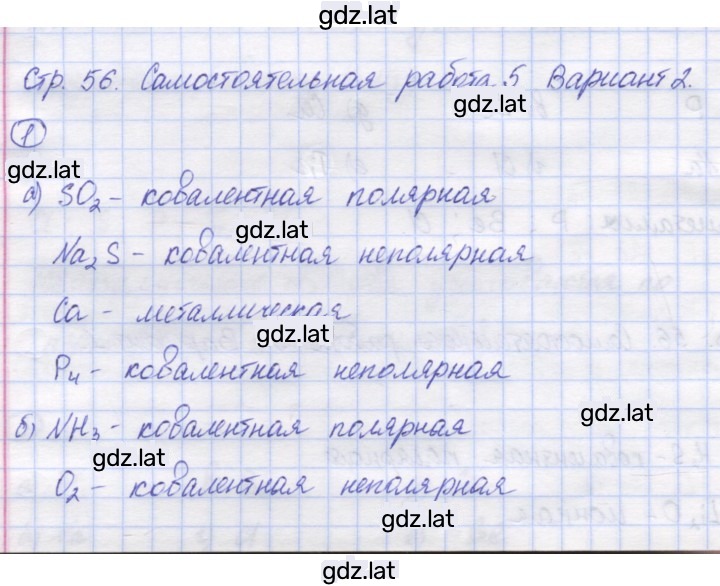 gdz.lat
Стр. 56. Самостоятельная работа 5 Вариант 2.
gdz.lat
1
gdz.lat
а) SO2 - ковалентная полярная
gdz.lat
Na2S - ковалентная неполярная
Ca - металлическая
gdz.lat
P4 - ковалентная неполярная
gdz.lat
б) NH3 - ковалентная полярная
gdz.lat
O2 - ковалентная неполярная
gdz.lat
gdz.lat